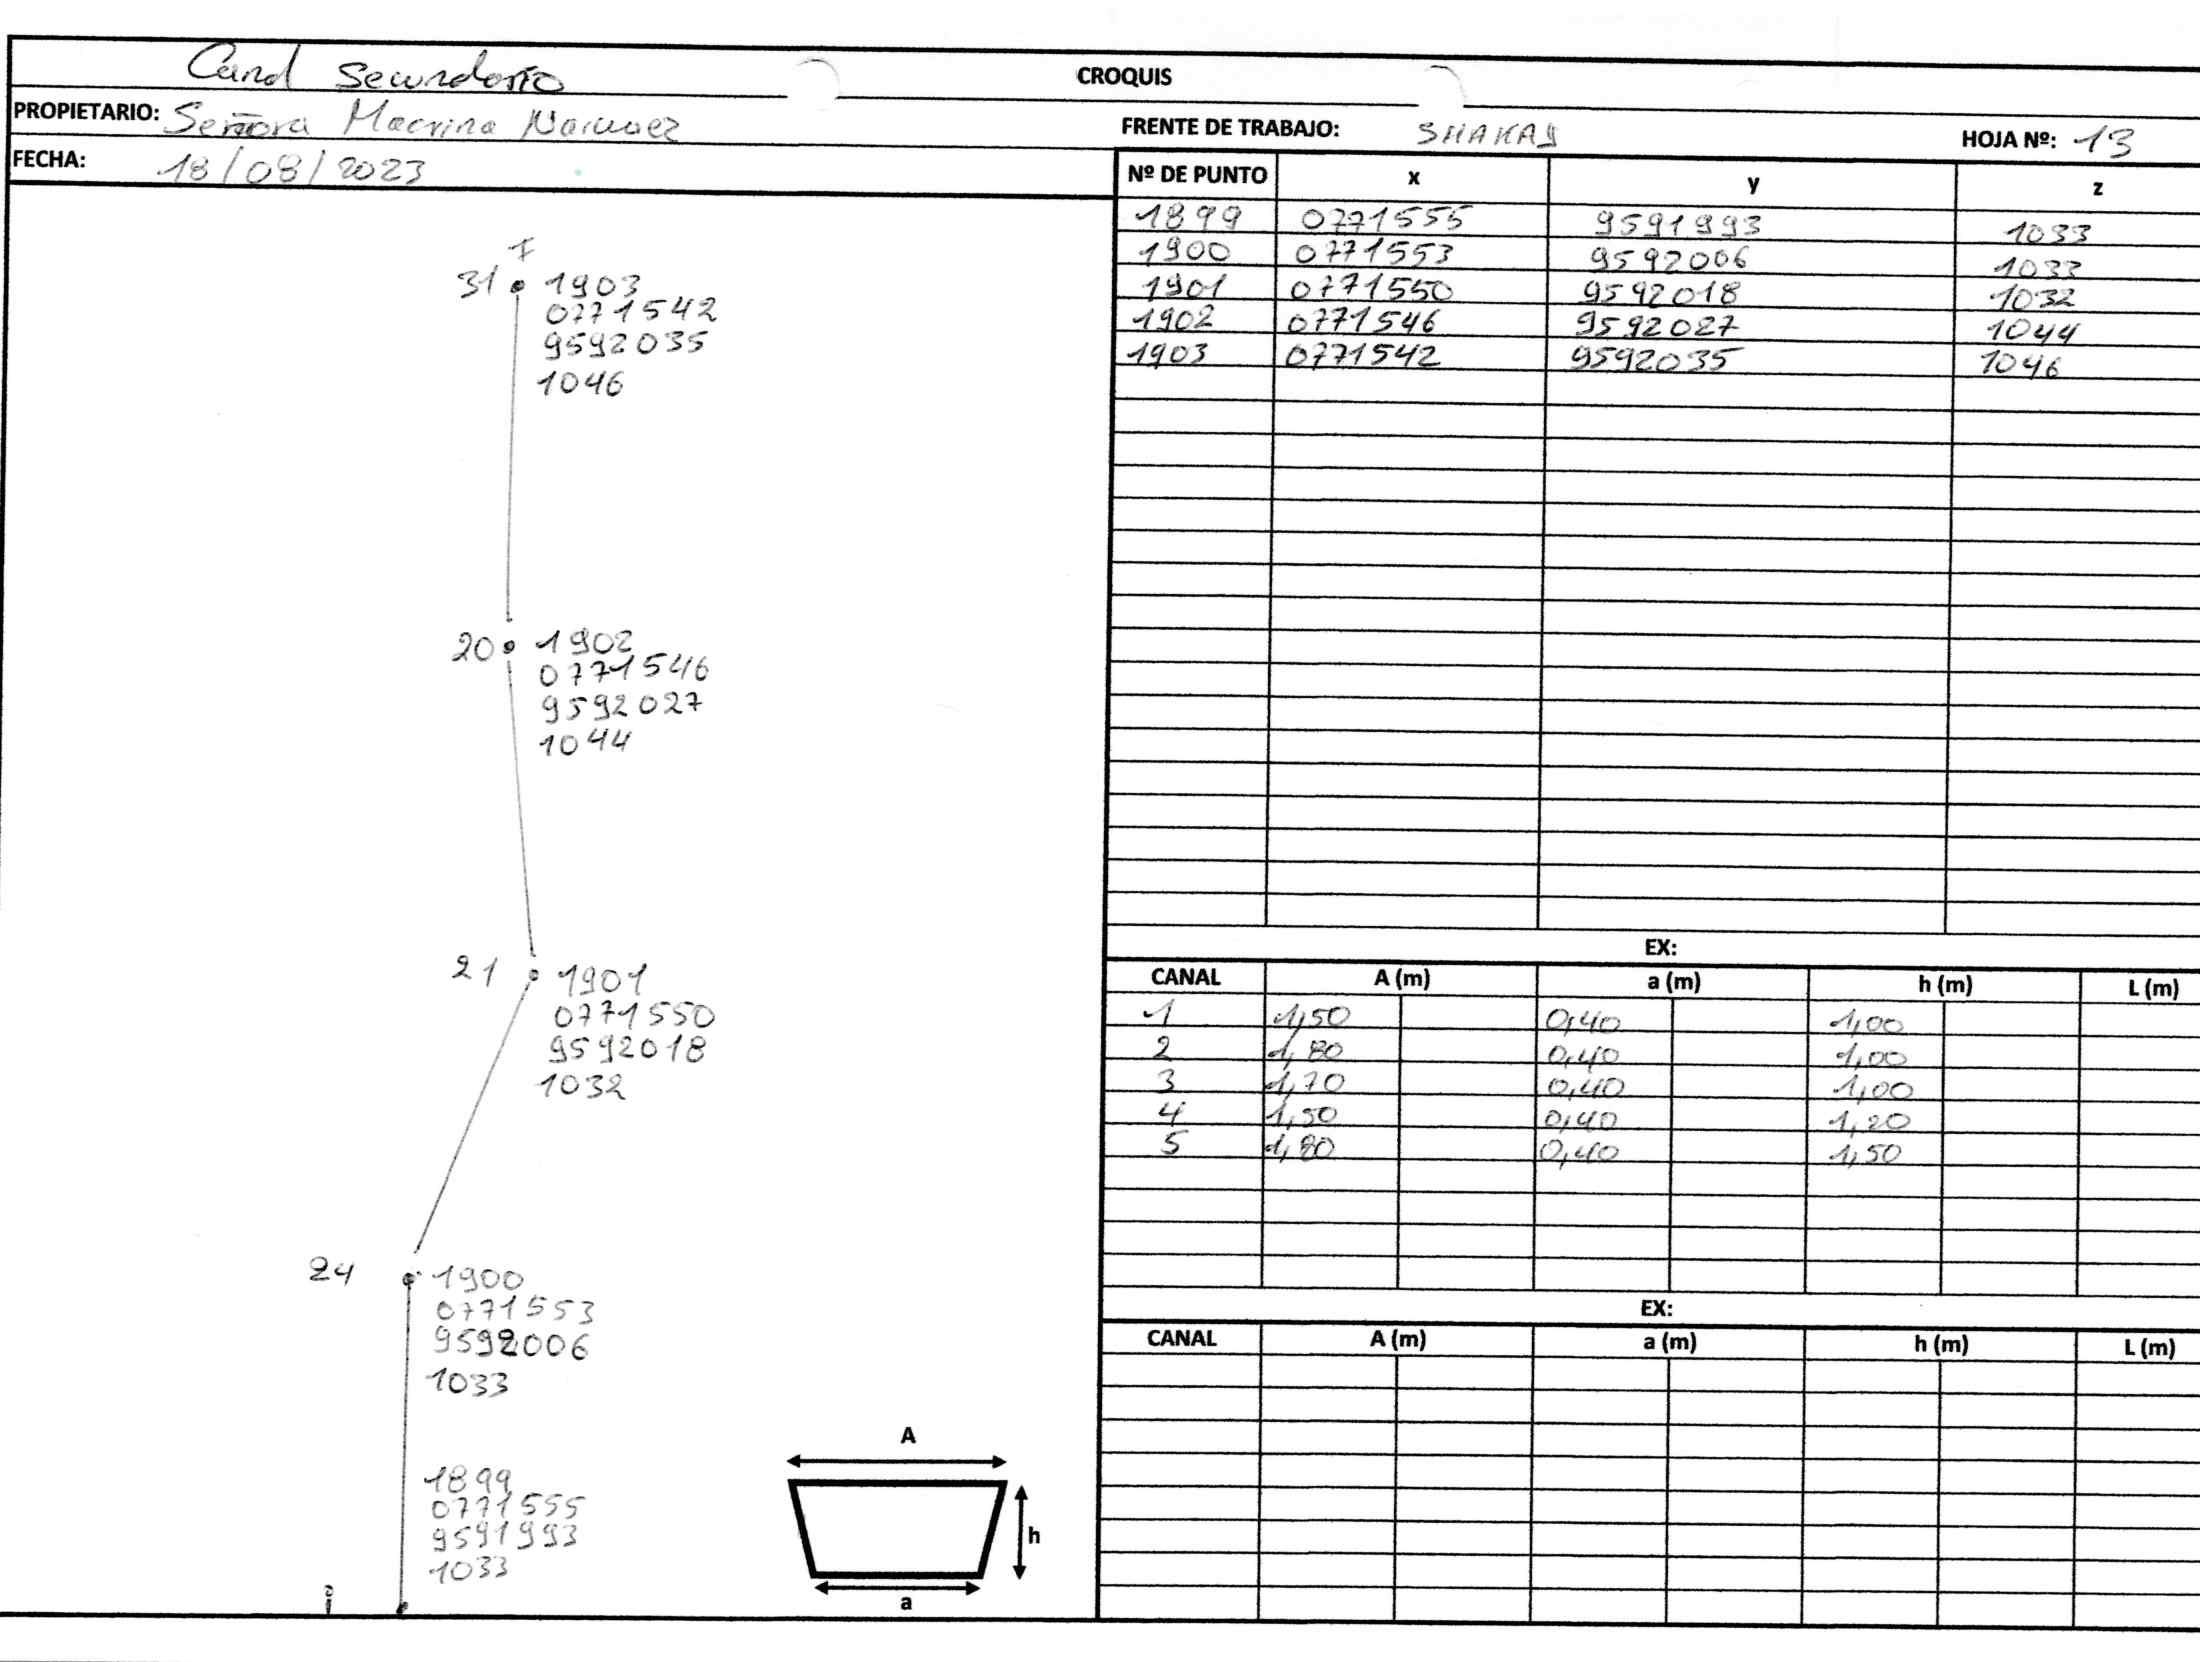 Canal Secundario
CROQUIS
PROPIETARIO: Señora Macrina Narvaez
FRENTE DE TRABAJO: SHAKAY
HOJA Nº: 13
FECHA: 18/08/2023
Nº DE PUNTO x y z
1899 0771555 9591993 1033
1900 0771553 9592006 1033
1901 0771550 9592018 1032
1902 0771546 9592027 1044
1903 0771542 9592035 1046
EX:
CANAL A (m) a (m) h (m) L (m)
1 1,50 0,40 1,00
2 1,80 0,40 1,00
3 1,70 0,40 1,00
4 1,50 0,40 1,20
5 1,80 0,40 1,50
EX:
CANAL A (m) a (m) h (m) L (m)
31 1903
0771542
9592035
1046
20 1902
0771546
9592027
1044
21 1901
0771550
9592018
1032
24 1900
0771553
9592006
1033
1899
0771555
9591993
1033
i
A
h
a